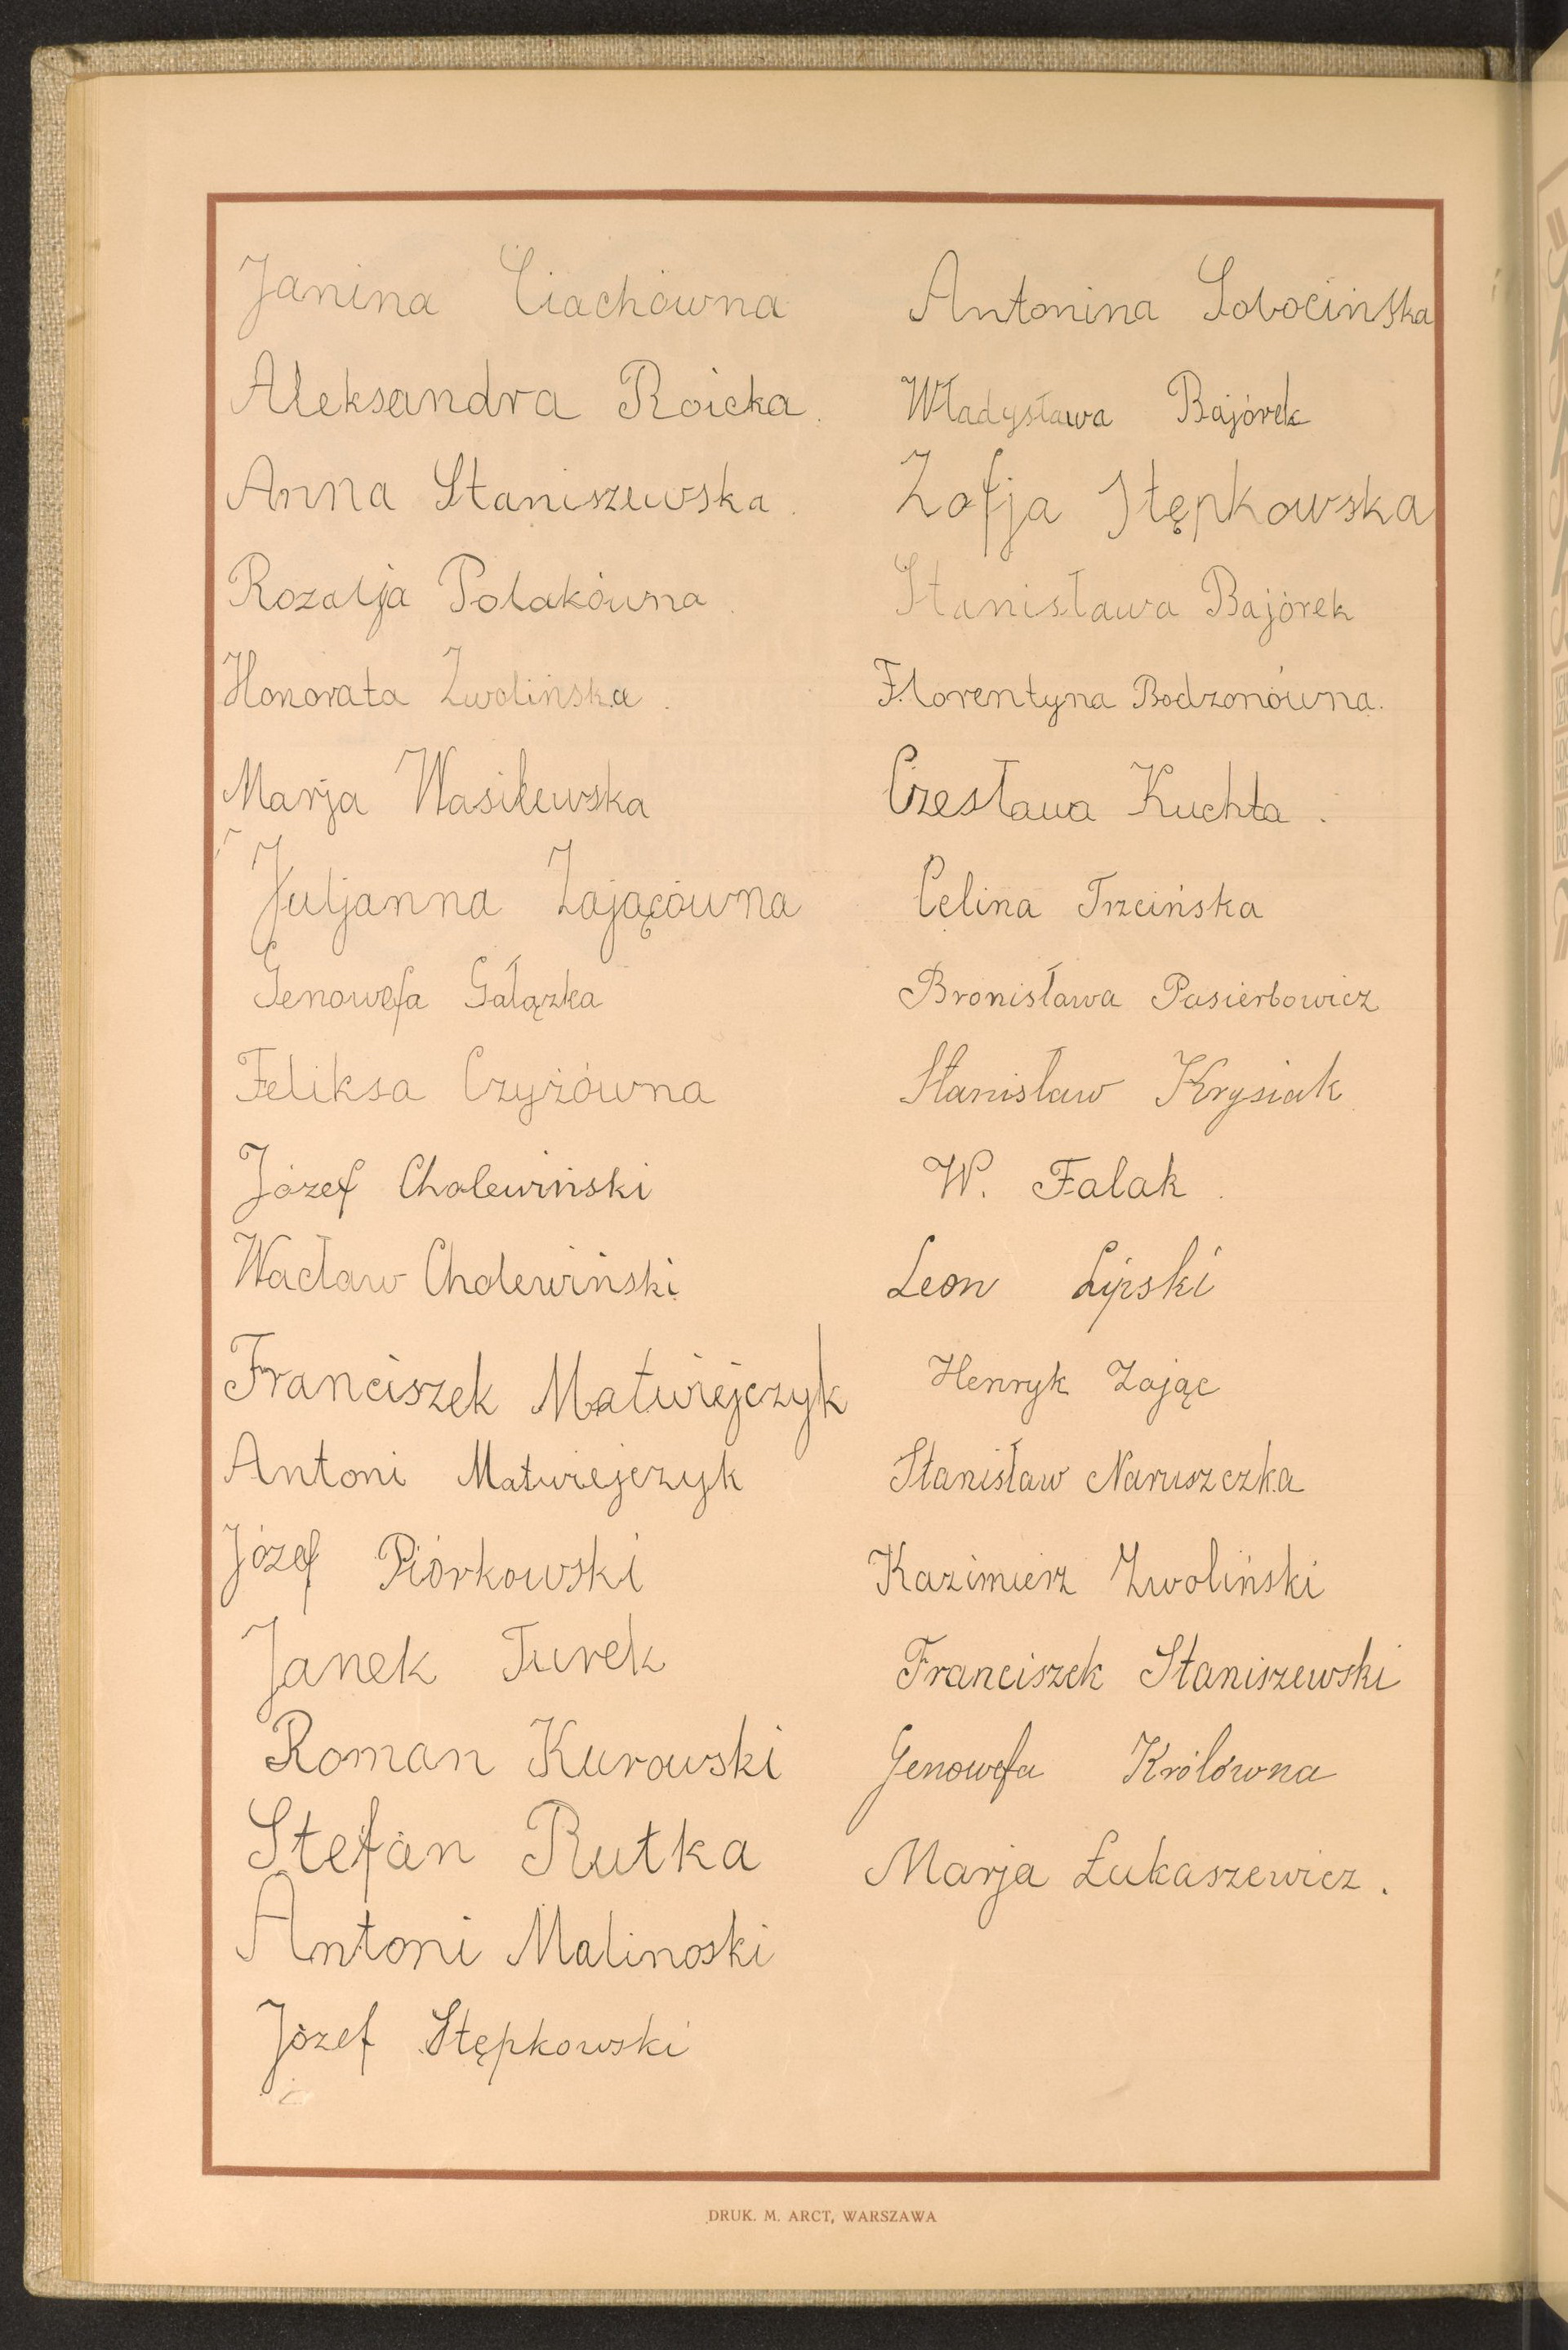 Janina Ciachówna
Aleksandra Roicka.
Anna Staniszewska.
Rozalja Polakówna.
Honorata Zwolińska.
Marja Wasilewska
Juljanna Zającówna
Genowefa Gałązka
Feliksa Czyżówna
Józef Cholewiński
Wacław Cholewiński
Franciszek Matwiejczyk
Antoni Matwiejczyk
Józef Piórkowski
Janek Turek
Roman Kurowski
Stefan Rutka
Antoni Malinoski
Józef Stępkowski
Antonina Sobocińska
Władysława Bajórek
Zofja Stępkowska
Stanisława Bajórek
Florentyna Bodzonówna.
Czesława Kuchta.
Celina Trzcińska
Bronisława Pasierbowicz
Stanisław Krysiak
W. Falak.
Leon Lipski
Henryk Zając
Stanisław Naruszczka
Kazimierz Zwoliński
Franciszek Staniszewski
Genowefa Królówna
Marja Łukaszewicz.
DRUK. M. ARCT, WARSZAWA